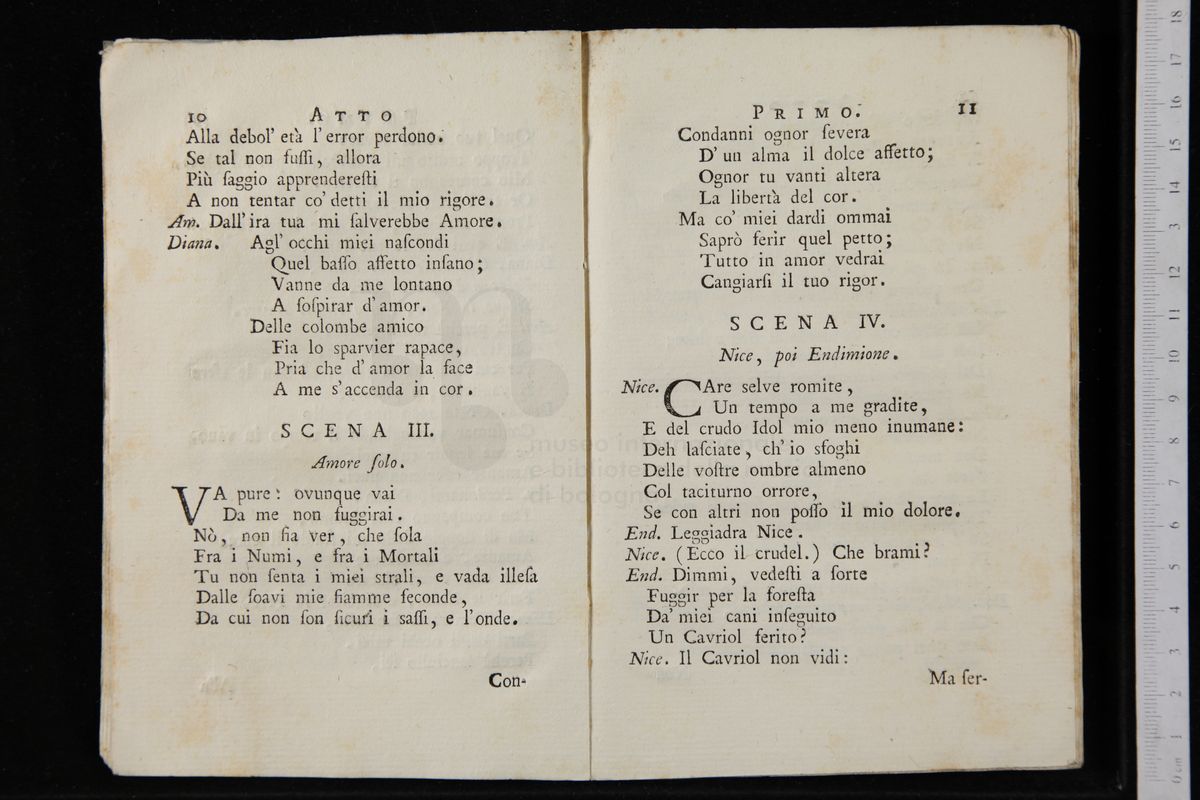 10 ATTO
Alla debol' età l' error perdono.
Se tal non fuſſi, allora
Più ſaggio apprendereſti
A non tentar co' detti il mio rigore.
Am. Dall' ira tua mi ſalverebbe Amore.
Diana. Agl' occhi miei naſcondi
Quel baſſo affetto inſano;
Vanne da me lontano
A ſoſpirar d' amor.
Delle colombe amico
Fia lo sparvier rapace,
Pria che d' amor la face
A me s' accenda in cor.
SCENA III.
Amore ſolo.
VA pure: ovunque vai
Da me non fuggirai.
Nò, non fia ver, che ſola
Fra i Numi, e fra i Mortali
Tu non ſenta i miei strali, e vada illeſa
Dalle ſoavi mie fiamme feconde,
Da cui non ſon ſicuri i saſſi, e l' onde.
Con-
PRIMO. 11
Condanni ognor ſevera
D' un alma il dolce affetto;
Ognor tu vanti altera
La libertà del cor.
Ma co' miei dardi ommai
Saprò ferir quel petto;
Tutto in amor vedrai
Cangiarſi il tuo rigor.
SCENA IV.
Nice, poi Endimione.
Nice. CAre selve romite,
Un tempo a me gradite,
E del crudo Idol mio meno inumane:
Deh laſciate, ch' io sfoghi
Delle voſtre ombre almeno
Col taciturno orrore,
Se con altri non poſſo il mio dolore.
End. Leggiadra Nice.
Nice. (Ecco il crudel.) Che brami?
End. Dimmi, vedeſti a ſorte
Fuggir per la foreſta
Da' miei cani inſeguito
Un Cavriol ferito?
Nice. Il Cavriol non vidi:
Ma ſer-